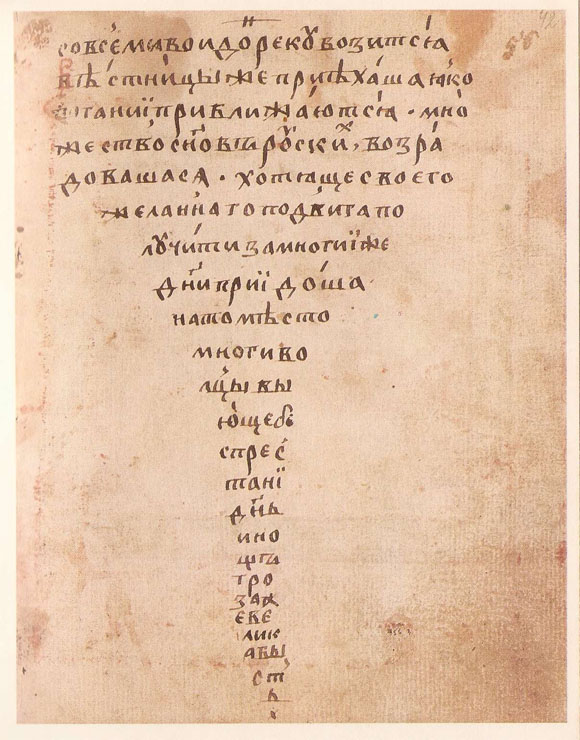 н
совсемивоидорекꙋвозитсѧ
вѣстницыжеприѣхашаꙗко
поганиїприближаютсѧ · мно
жествосн҃овърꙋскиⷯ, возра
довашасѧ · хотѧщесвоего
желаннагоподвигапо
лꙋчитизамногиїже
дн҃иприїдоша
натомѣсто
многиво
лцывы
ющебе
спрес
танї
дн҃ь
ино
щъ
гро
заж
еве
лик
абы
ст
ь